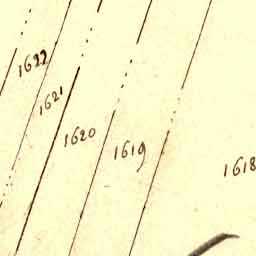 1622
1621
1620
1619
1618